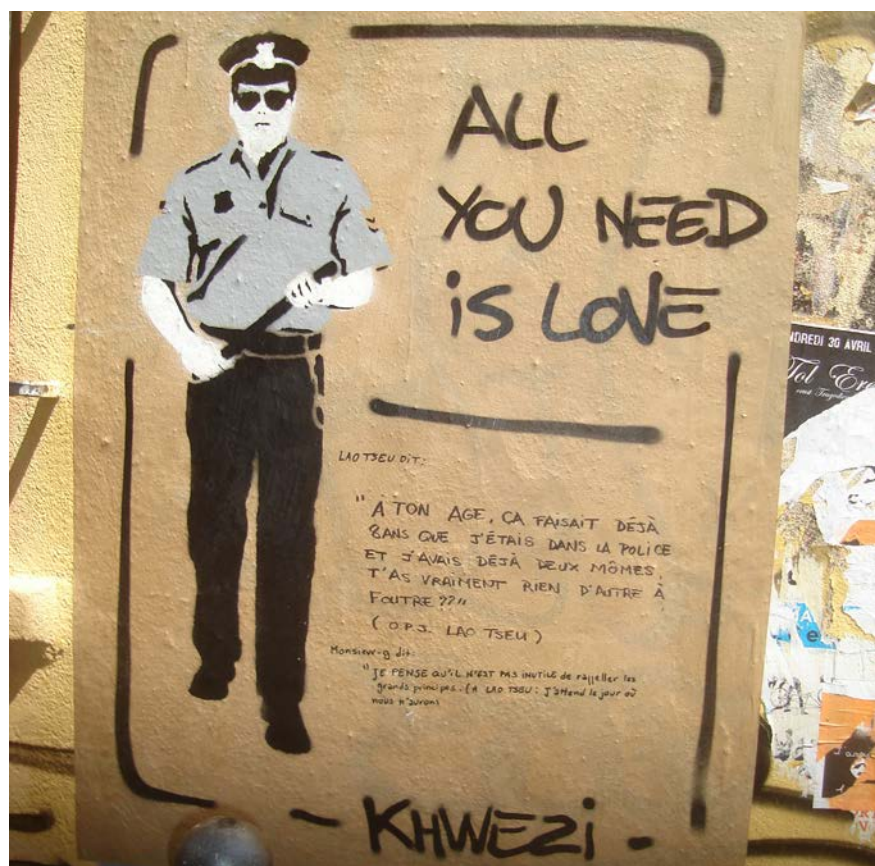 ALL
YOU NEED
iS LOVE
LAO TSEU DiT:
"À TON AGE, ÇA FAISAIT DÉJÀ
8ANS QUE J'ÉTAIS DANS LA POLICE
ET J'AVAIS DÉJÀ DEUX MÔMES,
T'AS VRAIMENT RIEN D'AUTRE À
FOUTRE ??"
(O.P.J. LAO TSEU)
Monsieur-g dit:
"JE PENSE QU'iL N'EST PAS INUTILE de rappeller les
grands principes. (A LAO TSEU: J'attend le jour où
nous n'aurons
- KHWEZi -
NDREDI 30 AVRIL
Tol